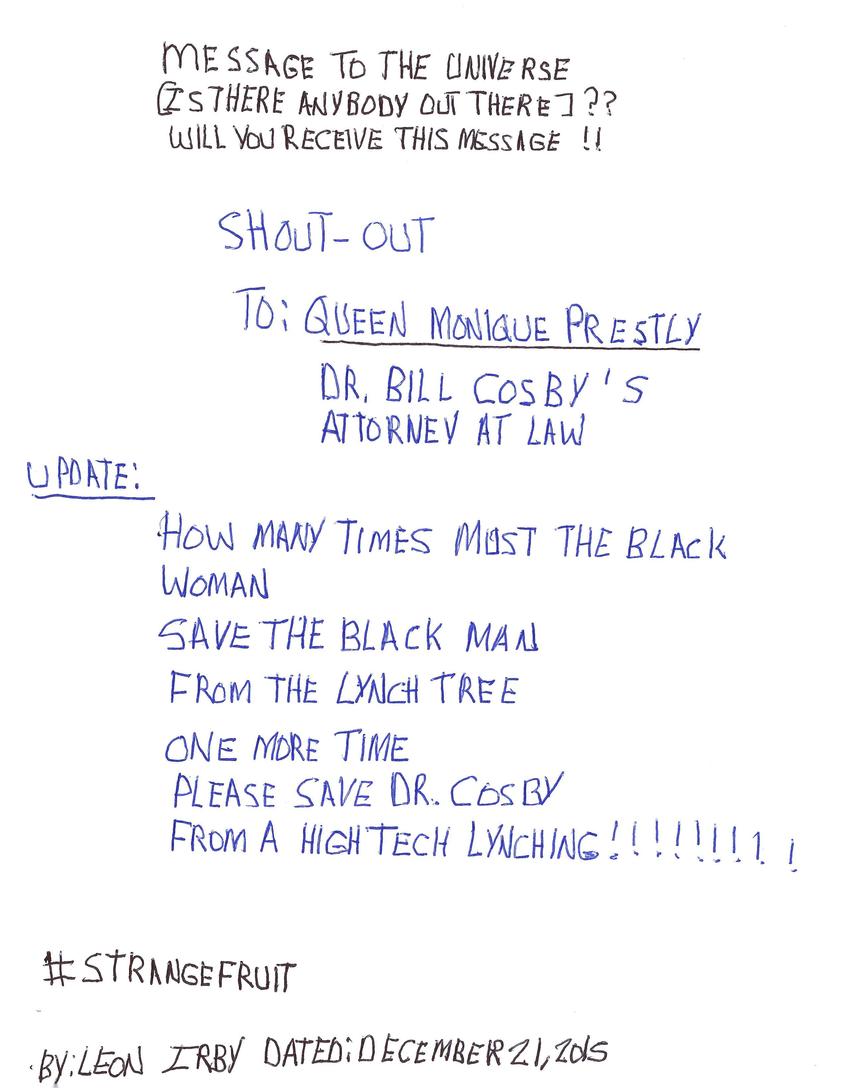 MESSAGE TO THE UNIVERSE
[IS THERE ANYBODY OUT THERE] ??
WILL YOU RECEIVE THIS MESSAGE !!
SHOUT-OUT
TO: QUEEN MONIQUE PRESTLY
DR. BILL COSBY'S
ATTORNEY AT LAW
UPDATE:
HOW MANY TIMES MUST THE BLACK
WOMAN
SAVE THE BLACK MAN
FROM THE LYNCH TREE
ONE MORE TIME
PLEASE SAVE DR. COSBY
FROM A HIGH TECH LYNCHING!!!!!!!!!!
#STRANGEFRUIT
BY: LEON IRBY DATED: DECEMBER 21, 2015